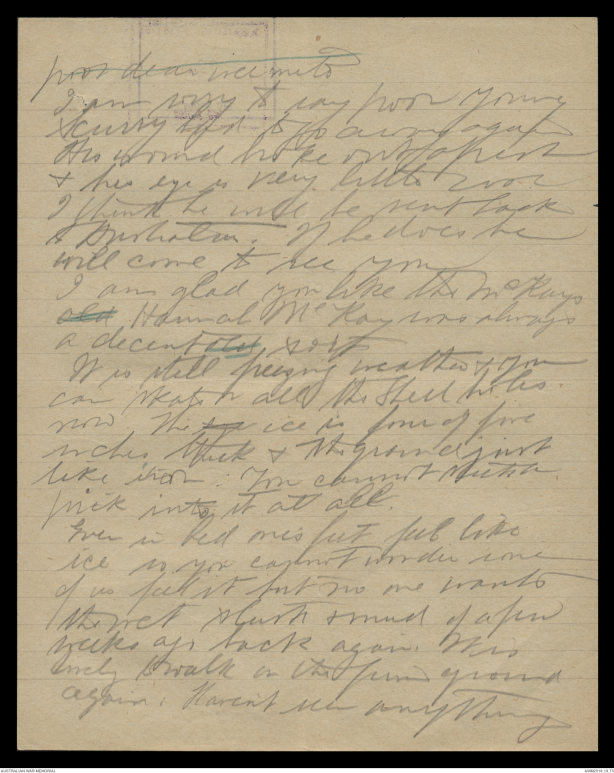 poor dear
I am sorry to say poor young
Scurry had to go away again
His wound broke out afresh
& his eye is very little good
I think he will be sent back
to Australia. If he does he
will come to see you
I am glad you like the McKays
old Hannah McKay was always
a decent old sort
It is still freezing weather & you
can skate on all the shell holes
now The ice is four or five
inches thick & the ground just
like iron. You cannot stick a
pick into it at all.
Even in bed ones feet feel like
ice so you cannot wonder some
of us feel it but no one wants
the wet slush & mud of a few
weeks ago back again. It is
lovely to walk on the firm ground
again. Haven't seen anything
AUSTRALIAN WAR MEMORIAL